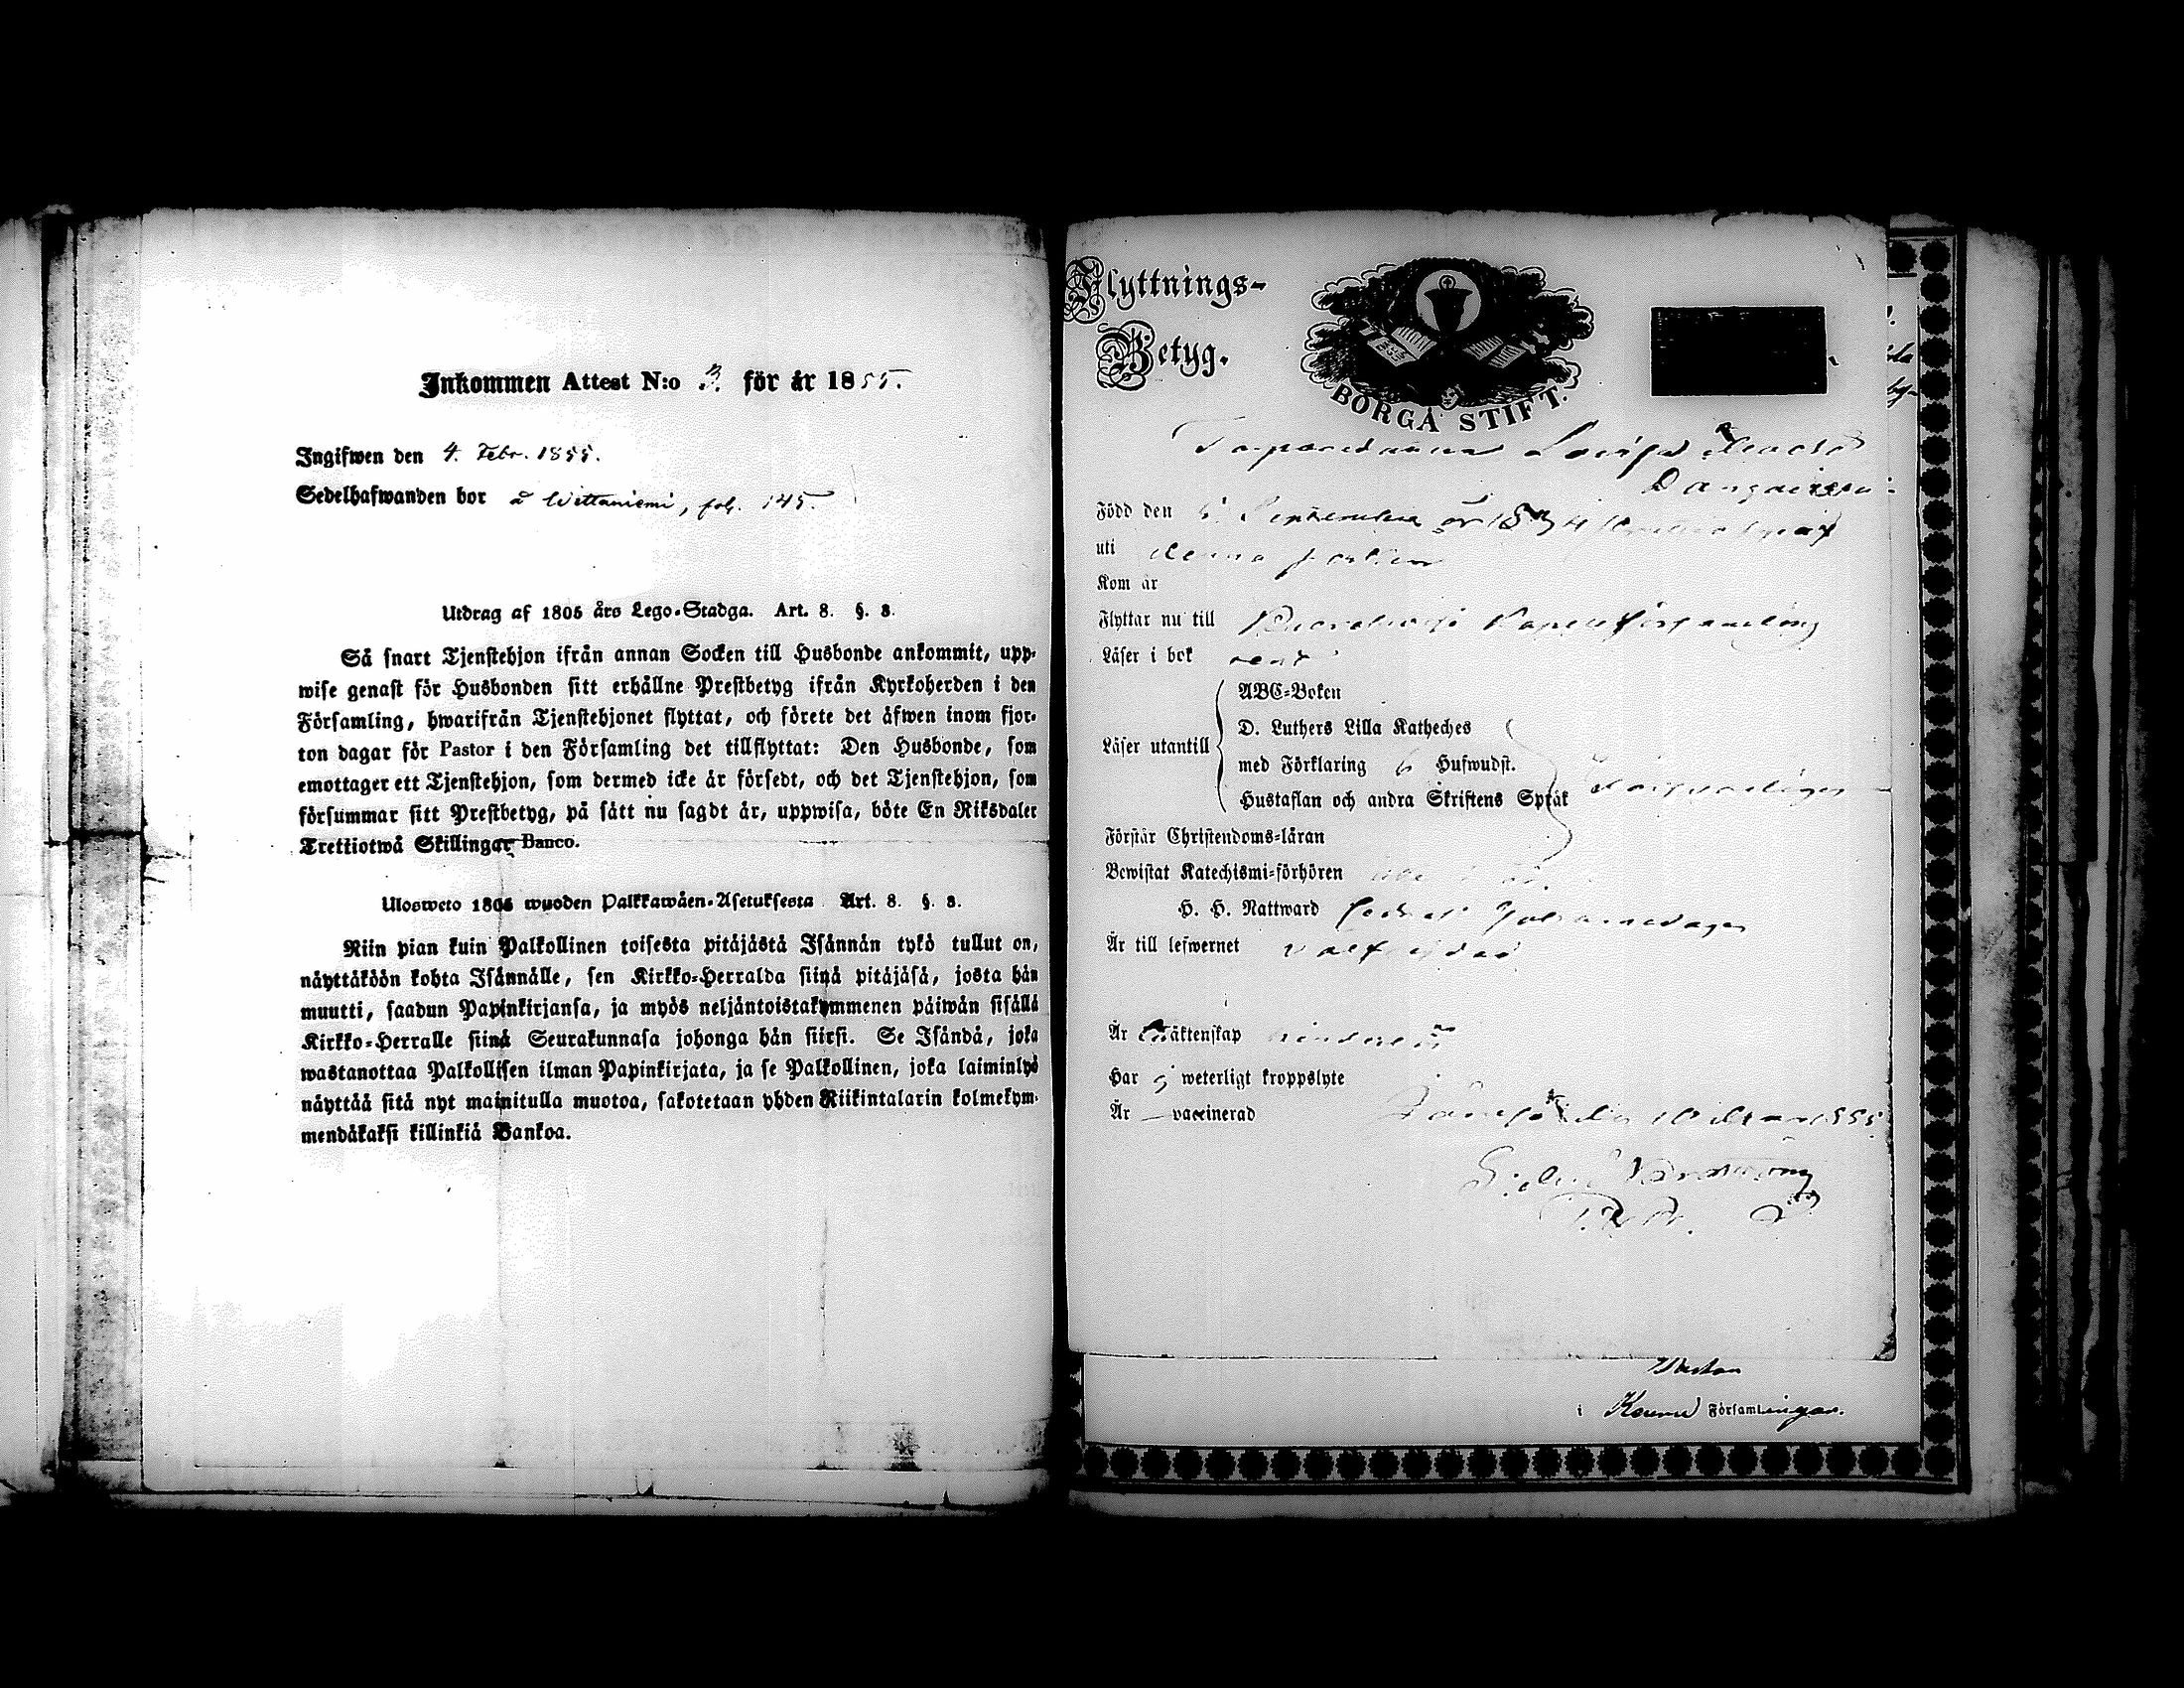 Inkommen Attest N:o 3. för år 1855.
Ingifwen den 4. Febr. 1855.
Sedelhafwanden bor å Wittaniemi, fol. 145.
Utdrag af 1805 års Lego-Stadga. Art. 8. §. 8.
Så snart Tjenstehjon ifrån annan Socken till Husbonde ankommit, upp-
wise genast för Husbonden sitt erhållne Prestbetyg ifrån Kyrkoherden i den
Församling, hwarifrån Tjenstehjonet flyttat, och förete det äfwen inom fjor-
ton dagar för Pastor i den Församling det tillflyttat: Den Husbonde, som
emottager ett Tjenstehjon, som dermed icke är försedt, och det Tjenstehjon, som
försummar sitt Prestbetyg, på sätt nu sagdt är, uppwisa, böte En Riksdaler
Trettiotwå Skillingar Banco.
Ulosweto 1805 wuoden Palkkawäen-Asetuksesta Art. 8. §. 8.
Niin pian kuin Palkollinen toisesta pitäjästä Isännän tykö tullut on,
näyttäköön kohta Isännälle, sen Kirkko-Herralda siinä pitäjäsä, josta hän
muutti, saadun Papinkirjansa, ja myös neljäntoistakymmenen päiwän sisällä
Kirkko-Herralle siinä Seurakunnasa johonga hän siirsi. Se Isändä, joka
wastanottaa Palkollisen ilman Papinkirjata, ja se Palkollinen, joka laiminlyö
näyttää sitä nyt mainitulla muotoa, sakotetaan yhden Riikintalarin kolmekym-
mendäkaksi killinkiä Bankoa.
Flyttnings-
Betyg.
BORGÅ STIFT.
Lovisa
Född den September år 1834
uti denna socken
Kom år
Flyttar nu till Kapellförsamling
Läser i bok rent
Läser utantill
ABC-Boken
D. Luthers Lilla Katheches
med Förklaring 6 Hufwudst.
Hustaflan och andra Skriftens Språk
Förstår Christendoms-läran
Bewistat Katechismi-förhören
H. H. Nattward Johannedagen
Är till lefwernet välfrejdad
Är Ecktenskap hinderslös
Har ej weterligt kroppslyte
Är — vaccinerad
den 10 1855
i Keuru Församlingar.